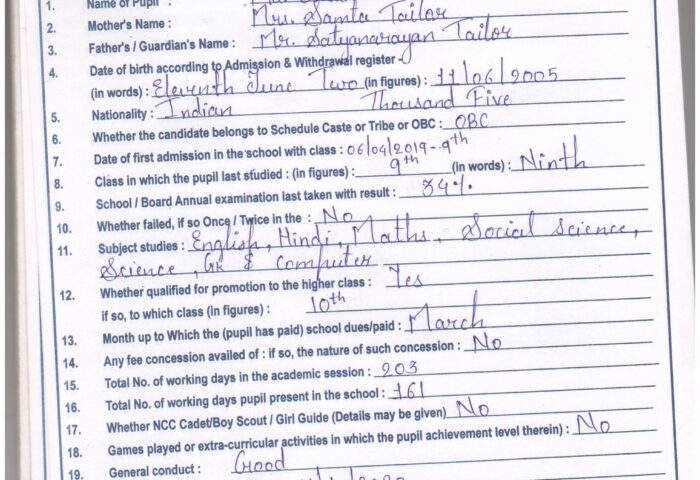 1. Name of Pupil :
2. Mother's Name : Mrs. Samta Tailor
3. Father's / Guardian's Name : Mr. Satyanarayan Tailor
4. Date of birth according to Admission & Withdrawal register -
(in words) : Eleventh June Two (in figures) : 11/06/2005
Thousand Five
5. Nationality : Indian
6. Whether the candidate belongs to Schedule Caste or Tribe or OBC : OBC
7. Date of first admission in the school with class : 06/04/2019 - 9th
8. Class in which the pupil last studied : (in figures) : 9th (in words) : Ninth
9. School / Board Annual examination last taken with result : 84%
10. Whether failed, if so Once / Twice in the : No
11. Subject studies : English, Hindi, Maths, Social science,
Science, GK & Computer
12. Whether qualified for promotion to the higher class : Yes
if so, to which class (in figures) : 10th
13. Month up to Which the (pupil has paid) school dues/paid : March
14. Any fee concession availed of : if so, the nature of such concession : No
15. Total No. of working days in the academic session : 203
16. Total No. of working days pupil present in the school : 161
17. Whether NCC Cadet/Boy Scout / Girl Guide (Details may be given) No
18. Games played or extra-curricular activities in which the pupil achievement level therein) : No
19. General conduct : Good